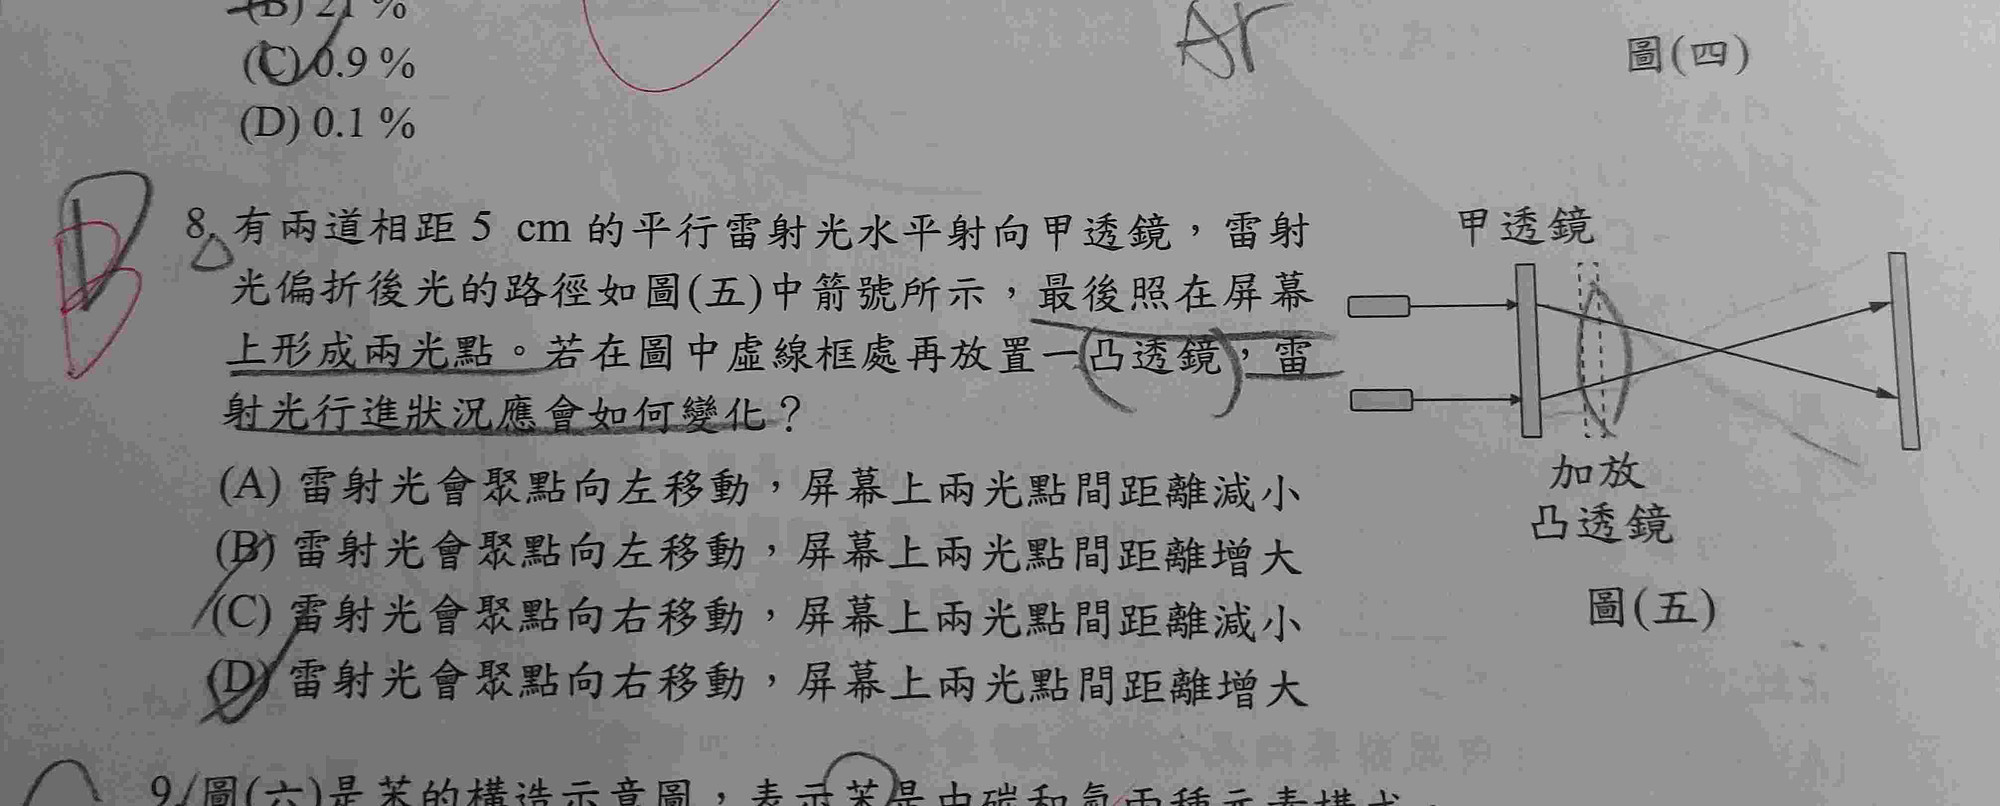 (B) 21 %
(C) 0.9 %
(D) 0.1 %
Ar
圖(四)
D
B
8. 有兩道相距 5 cm 的平行雷射光水平射向甲透鏡，雷射
光偏折後光的路徑如圖(五)中箭號所示，最後照在屏幕
上形成兩光點。若在圖中虛線框處再放置一凸透鏡，雷
射光行進狀況應會如何變化？
(A) 雷射光會聚點向左移動，屏幕上兩光點間距離減小
(B) 雷射光會聚點向左移動，屏幕上兩光點間距離增大
(C) 雷射光會聚點向右移動，屏幕上兩光點間距離減小
(D) 雷射光會聚點向右移動，屏幕上兩光點間距離增大
甲透鏡
加放
凸透鏡
圖(五)
9. 圖(六)是苯的構造示意圖，表示苯是由碳和氫兩種元素構成。